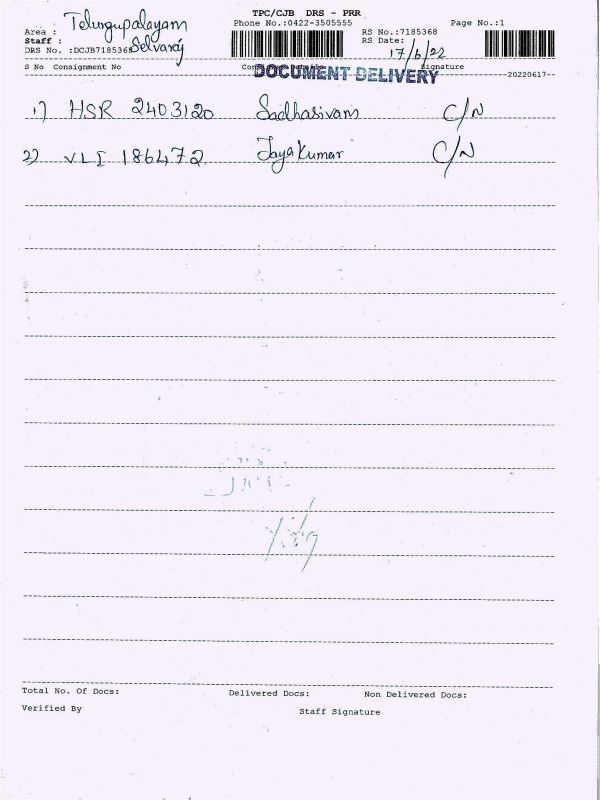 TPC/CJB DRS - PRR
Area : Telungupalayam Phone No.:0422-3505555 RS No.:7185368 Page No.:1
Staff : Selvaraj RS Date: 17/6/22
DRS No. :DCJB7185368
S No Consignment No Signature
DOCUMENT DELIVERY 20220617
1) HSR 2403120 Sadhasivam C/N
2) VLI 186472 JayaKumar C/N
Total No. Of Docs: Delivered Docs: Non Delivered Docs:
Verified By Staff Signature